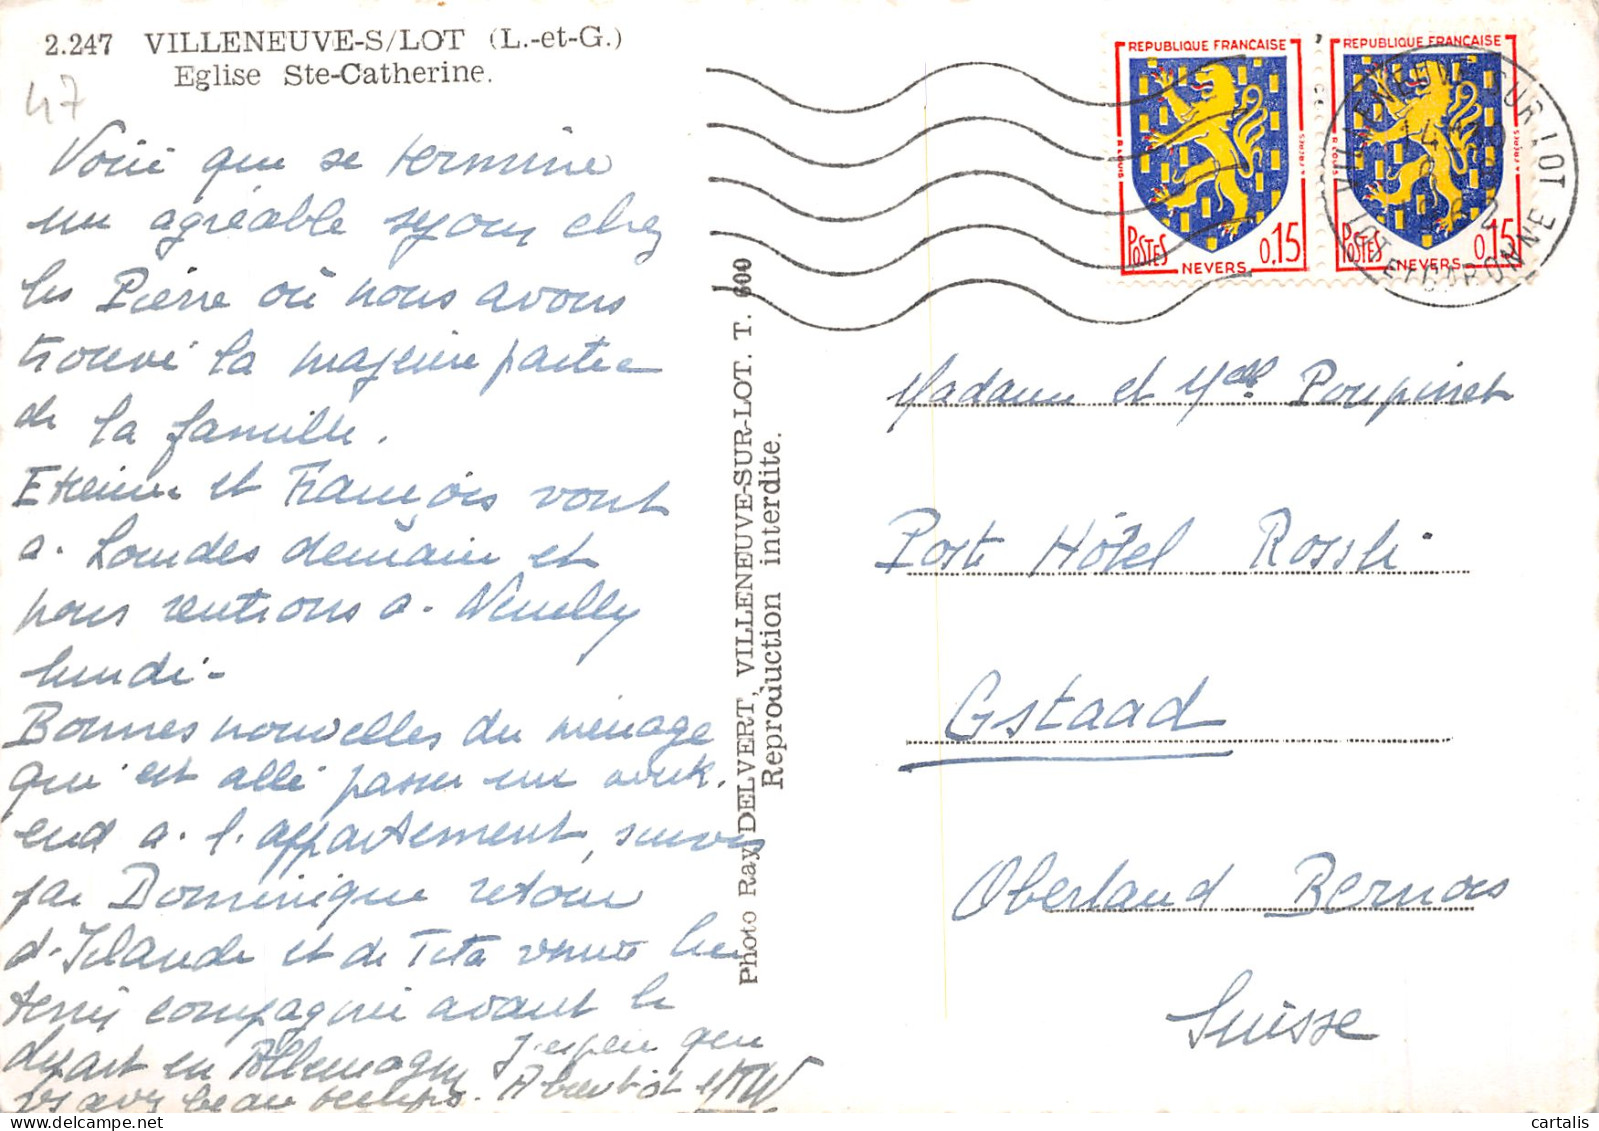 2.247 VILLENEUVE-S/LOT (L.-et-G.)
Eglise Ste-Catherine.
47
Voici que se termine
un agréable séjour chez
les Pierre où nous avons
trouvé la majeure partie
de la famille.
Etienne et François vont
a. Lourdes demain et
nous rentrons a. Neuilly
lundi-
Bonnes nouvelles du ménage
qui est allé passer un week.
end a. l'appartement, suivis
par Dominique retour
d'Islande et de Tita venus lui
tenir compagnie avant le
départ en Allemagne J'espère que
vs avez beau temps. A bientôt
Photo Ray DELVERT, VILLENEUVE-SUR-LOT. T. 600
Reproduction interdite.
REPUBLIQUE FRANÇAISE
POSTES 0,15
NEVERS
REPUBLIQUE FRANÇAISE
POSTES 0,15
NEVERS
VILLENEUVE SUR LOT
LOT ET GARONNE
Madame et Melle Poupinet
Post Hôtel Rössli
Gstaad
Oberland Bernois
Suisse
cartalis